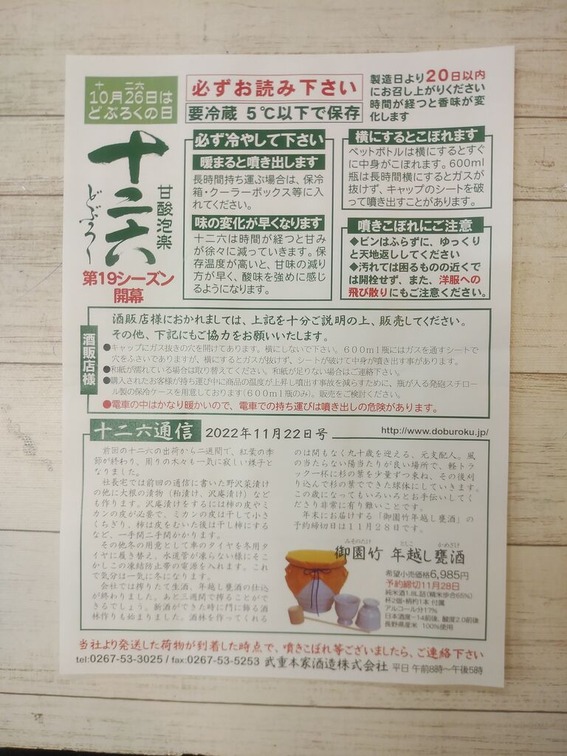 十　二六
10月26日は
どぶろくの日
必ずお読み下さい
要冷蔵 5℃以下で保存
製造日より20日以内
にお召し上がりください
時間が経つと香味が変
化します
十二六
どぶろく
甘酸泡楽
第19シーズン
開幕
必ず冷やして下さい
暖まると噴き出します
長時間持ち運ぶ場合は、保冷
箱・クーラーボックス等に入
れてください。
味の変化が早くなります
十二六は時間が経つと甘み
が徐々に減っていきます。保
存温度が高いと、甘味の減り
方が早く、酸味を強めに感じ
るようになります。
横にするとこぼれます
ペットボトルは横にするとすぐ
に中身がこぼれます。600ml
瓶は長時間横にするとガスが
抜けず、キャップのシートを破
って噴き出すことがあります。
噴きこぼれにご注意
◆ビンはふらずに、ゆっくり
と天地返ししてください
◆汚れては困るものの近くで
は開栓せず、また、洋服への
飛び散りにもご注意ください。
酒販店様
酒販店様におかれましては、上記を十分ご説明の上、販売してください。
その他、下記にもご協力をお願いいたします。
●キャップにガス抜きの穴を開けてあります。横にしないで下さい。600ml瓶にはガスを通すシートで
穴をふさいでありますが、横にするとガスが抜けず、シートが破けて中身が噴き出す事があります。
●和紙が濡れている場合は取り替えてください。和紙が足りない場合はご連絡下さい。
●購入されたお客様が持ち運び中に商品の温度が上昇し噴出す事故を減らすために、瓶が入る発砲スチロー
ル製の保冷ケースを用意しております(600ml瓶のみ)。販売をご検討ください。
●電車の中はかなり暖かいので、電車での持ち運びは噴き出しの危険があります。
十二六通信 2022年11月22日号
http://www.doburoku.jp/
前回の十二六の出荷から二週間で、紅葉の季
節が終わり、周りの木々も一気に寂しい様子と
なりました。
社長宅では前回の通信に書いた野沢菜漬け
の他に大根の漬物(粕漬け、沢庵漬け)など
も作ります。沢庵漬けをするには柿の皮やミ
カンの皮が必要で、ミカンの皮は干して小さ
くちぎり、柿は皮をむいた後は干し柿にする
など、一手間二手間かかります。
その他冬の用意として車のタイヤを冬用タ
イヤに履き替え、水道管が凍らない様にそこ
かしこの凍結防止帯の電源を入れます。これ
で気分は一気に冬になります。
会社では搾りたて生酒、年越し甕酒の仕込
が終わりました。あと三週間で搾ることがで
きるでしょう。新酒ができた時に門に飾る酒
林作りも始まりました。酒林を作ってくれる
のは間もなく九十歳を迎える、元支配人。風
の当たらない陽当たりが良い場所で、軽トラ
ック一杯に杉の葉を少量ずつ束ね、その後刈
り込んで杉の葉でできた球体にしていきます。
この歳になってもいろいろとお手伝いしてく
ださり非常に有り難いことです。
年末にお届けする「御園竹年越し甕酒」の
予約締切日は11月28日です。
みそのたけ　としこ　かめざけ
御園竹 年越し甕酒
希望小売価格6,985円
予約締切11月28日
純米酒1.8L詰(精米歩合65%)
杯2個・柄杓1本 付属
アルコール分17%
日本酒度-14前後、酸度2.0前後
長野県産米 100%使用
当社より発送した荷物が到着した時点で、噴きこぼれ等ございましたら、ご連絡下さい
tel:0267-53-3025 / fax:0267-53-5253 武重本家酒造株式会社 平日 午前8時～午後5時